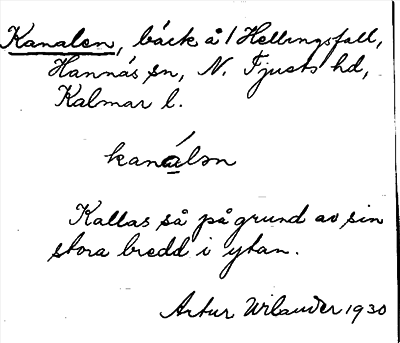 Kanalen, bäck å / Hellingsfall,
Hannäs sn, N. Tjusts hd,
Kalmar l.
kanálən
Kallas så på grund av sin
stora bredd i ytan.
Artur Wilander 1930